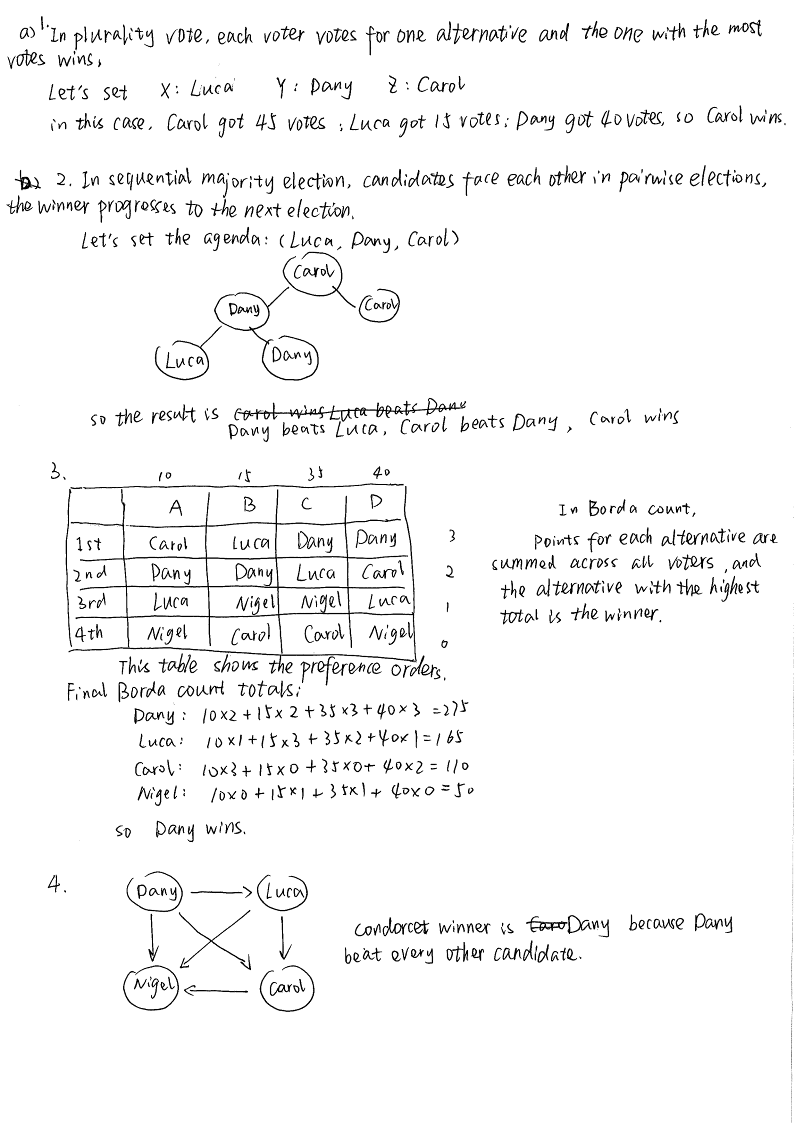 a) 1. In plurality vote, each voter votes for one alternative and the one with the most
votes wins,
Let's set X: Luca Y: Dany Z: Carol
in this case, Carol got 45 votes ; Luca got 15 votes; Dany got 40 votes, so Carol wins.
b) 2. In sequential majority election, candidates face each other in pairwise elections,
the winner progresses to the next election.
Let's set the agenda: (Luca, Dany, Carol)
Carol
Dany Carol
Luca Dany
so the result is Carol wins Luca beats Dany
Dany beats Luca, Carol beats Dany, Carol wins
3. 10 15 35 40
A B C D
1st Carol Luca Dany Dany 3
2nd Dany Dany Luca Carol 2
3rd Luca Nigel Nigel Luca 1
4th Nigel Carol Carol Nigel 0
In Borda count,
points for each alternative are
summed across all voters, and
the alternative with the highest
total is the winner.
This table shows the preference orders.
Final Borda count totals:
Dany: 10×2+15×2+35×3+40×3=275
Luca: 10×1+15×3+35×2+40×1=165
Carol: 10×3+15×0+35×0+40×2=110
Nigel: 10×0+15×1+35×1+40×0=50
so Dany wins.
4.
Dany Luca
Nigel Carol
Condorcet winner is Caro Dany because Dany
beat every other candidate.